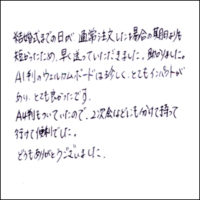 結婚式までの日が通常注文した場合の期日よりも
短かったため、早く送っていただきました。助かりました。
A1判のウェルカムボードは珍しく、とてもインパクトが
あり、とても良かったです。
A4判もついていたので、2次会などにも分けて持って
行けて便利でした。
どうもありがとうございました。